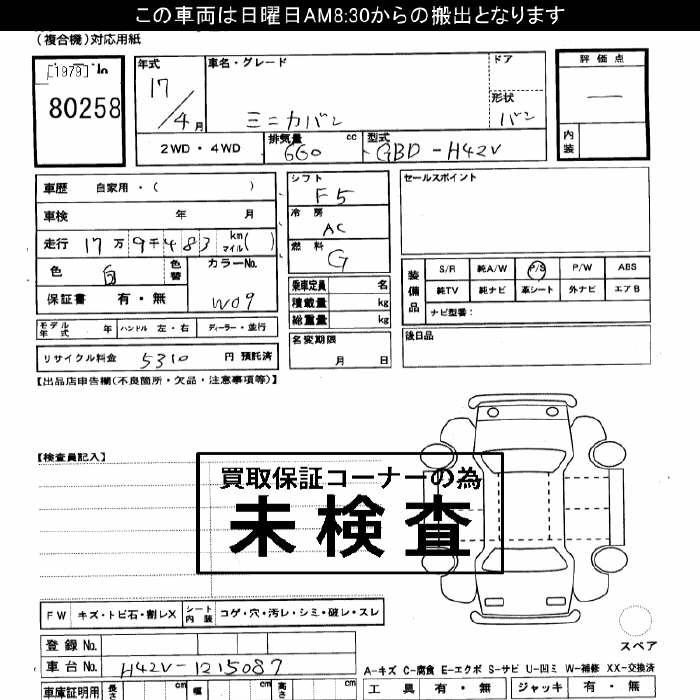 この車両は日曜日AM8:30からの搬出となります
(複合機)対応用紙
[1979]
80258
年式
17/4月
車名・グレード
ミニカバン
ドア
形状
バン
評価点
―
内装
2WD・4WD
排気量 660 cc
型式 GBD-H42V
車歴 自家用・( )
車検 年 月
走行 17万9千483 km マイル( )
色 白 色替
カラーNo. W09
保証書 有・無
モデル年式 年 ハンドル 左・右 ディーラー・並行
リサイクル料金 5310 円 預託済
シフト F5
冷房 AC
燃料 G
乗車定員 名
積載量 kg
総重量 kg
名変期限
月 日
セールスポイント
装備品
S/R 純A/W P/S P/W ABS
純TV 純ナビ 革シート 外ナビ エアB
ナビ型番:
後日品
【出品店申告欄(不良箇所・欠品・注意事項等)】
【検査員記入】
買取保証コーナーの為
未検査
FW キズ・トビ石・割レX シート内装 コゲ・穴・汚レ・シミ・破レ・スレ
登録No.
車台No. H42V-1215087
車庫証明用 長さ cm 幅 cm 高さ cm
スペア
A-キズ C-腐食 E-エクボ S-サビ U-凹ミ W-補修 XX-交換済
工具 有・無 ジャッキ 有・無